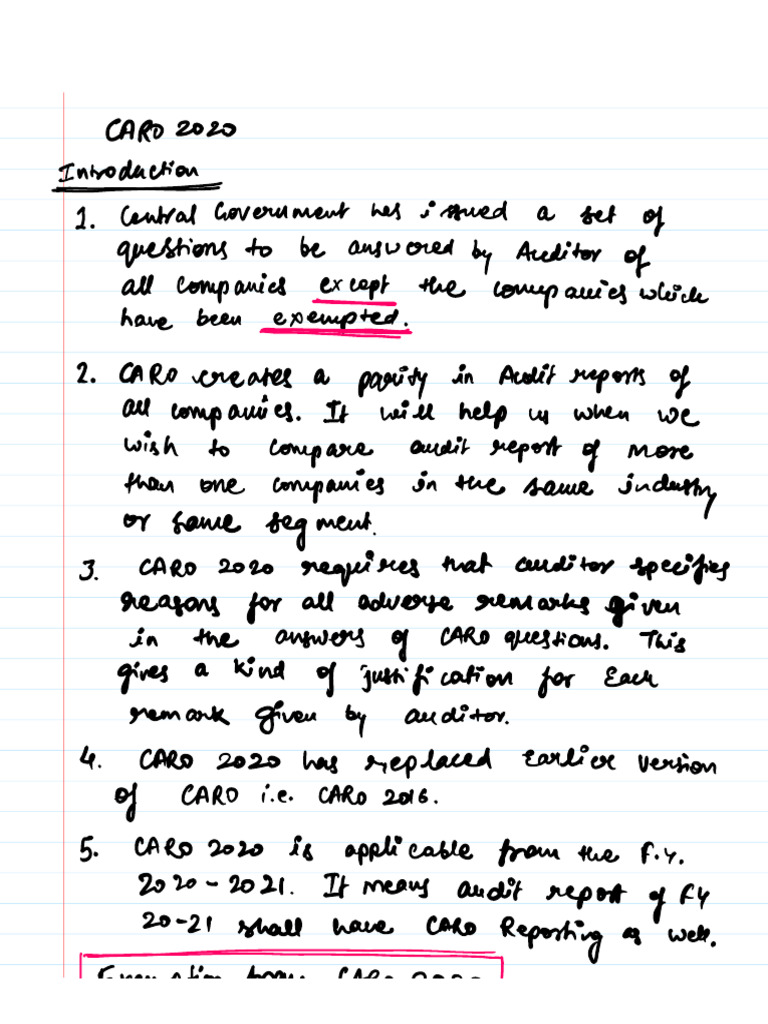 CARO 2020
Introduction
1. Central Government has issued a set of
questions to be answered by Auditor of
all Companies except the companies which
have been exempted.
2. CARO creates a parity in Audit reports of
all companies. It will help us when we
wish to compare audit report of more
than one companies in the same industry
or same segment.
3. CARO 2020 requires that auditor specifies
reasons for all adverse remarks given
in the answers of CARO questions. This
gives a kind of justification for Each
remark given by auditor.
4. CARO 2020 has replaced Earlier version
of CARO i.e. CARO 2016.
5. CARO 2020 is applicable from the F.Y.
2020-2021. It means audit report of FY
20-21 shall have CARO Reporting as well.
Exemption from CARO 2020